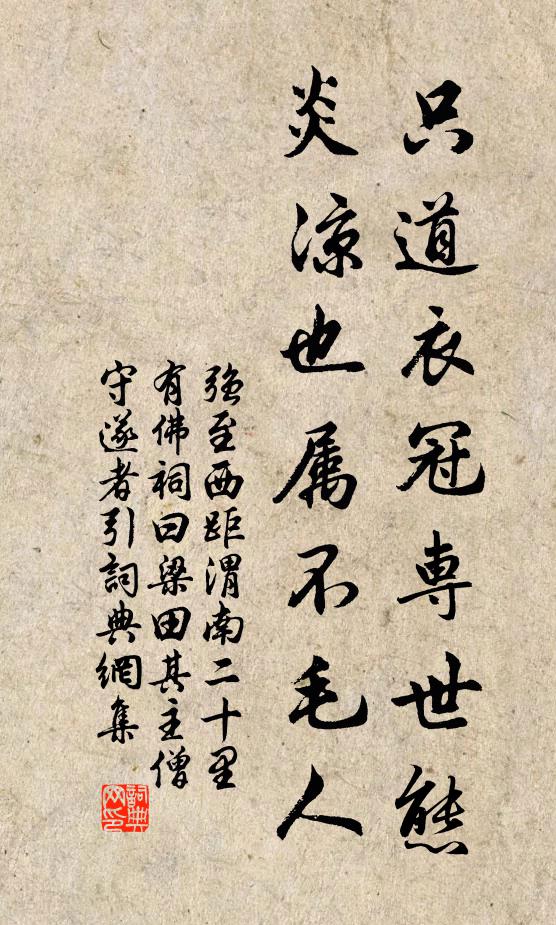 只道衣冠専世態
炎凉也属不毛人
強至西距渭南二十里
有佛祠曰梁田其主僧
守遂者引詞典網集
詞典网印